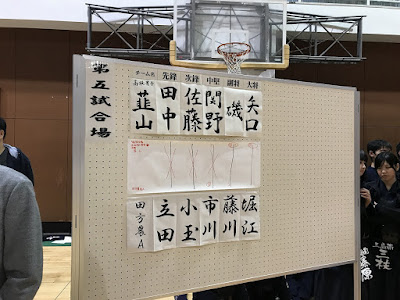 第五試合場
チーム名 先鋒 次鋒 中堅 副将 大将
韮山 田中 佐藤 関野 磯 矢口
田方農A 立田 小玉 市川 藤川 堀江
三桂